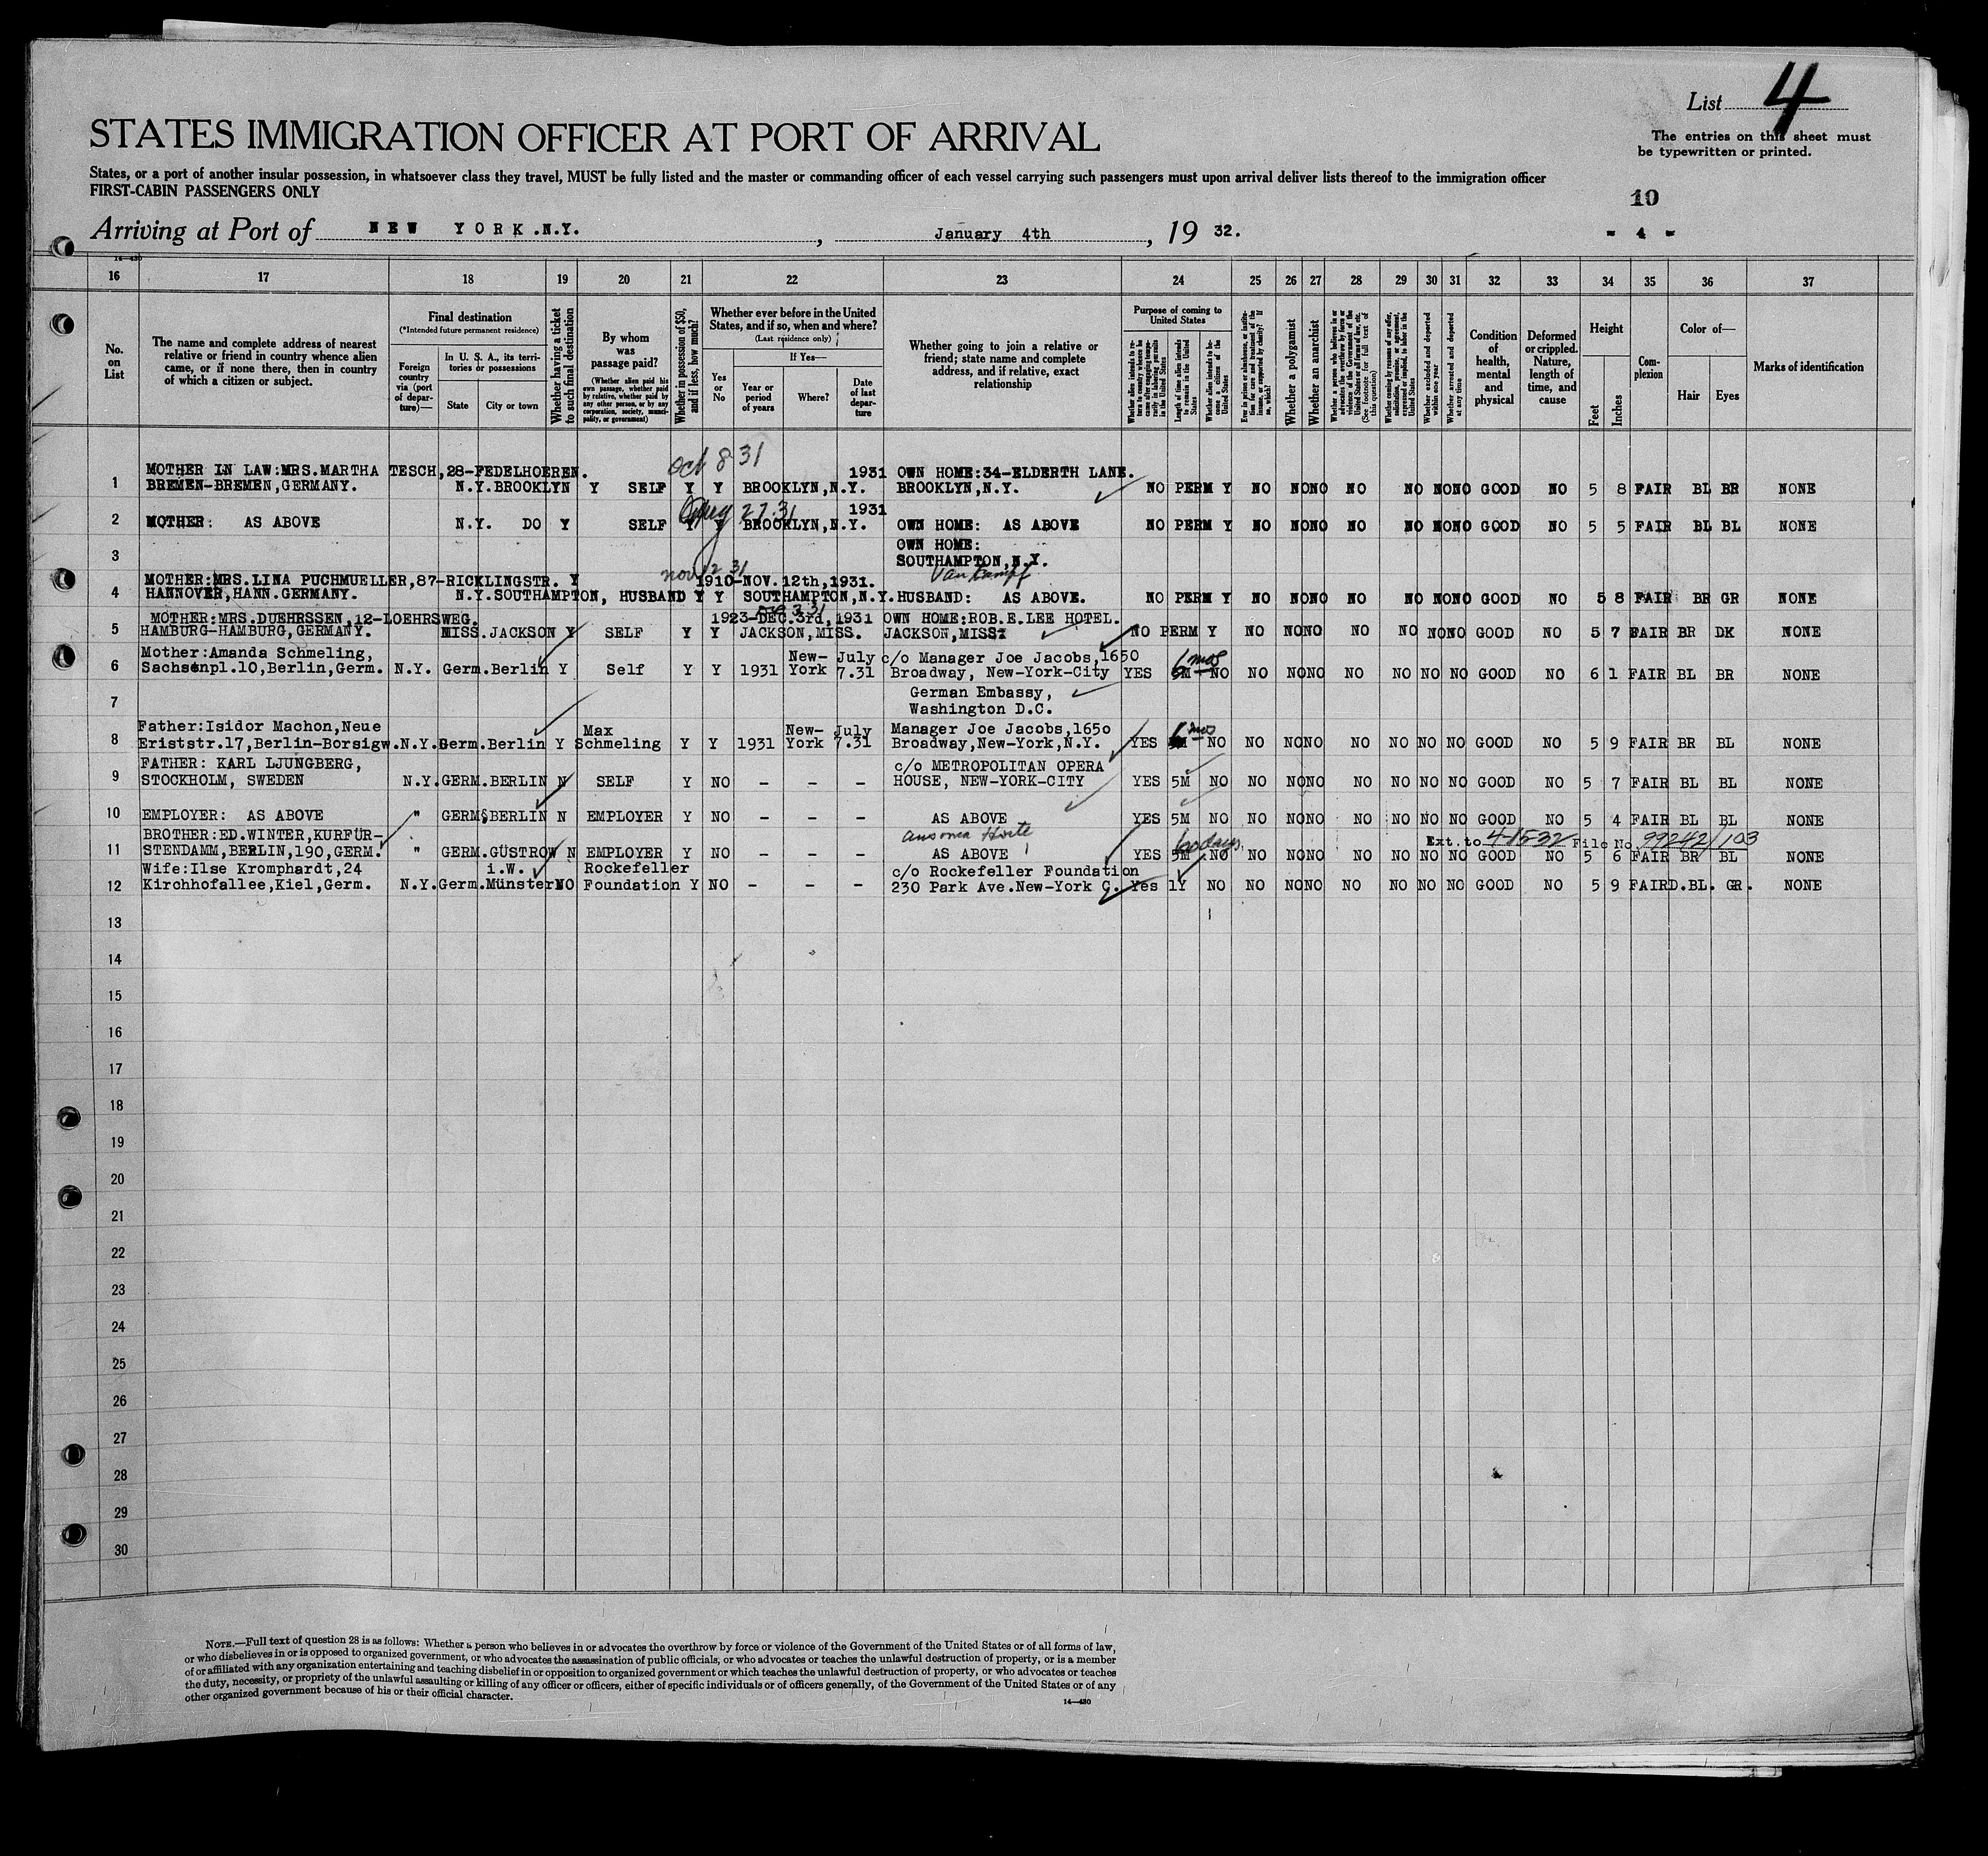 List 4
STATES IMMIGRATION OFFICER AT PORT OF ARRIVAL
The entries on this sheet must
be typewritten or printed.
States, or a port of another insular possession, in whatsoever class they travel, MUST be fully listed and the master or commanding officer of each vessel carrying such passengers must upon arrival deliver lists thereof to the immigration officer
FIRST-CABIN PASSENGERS ONLY
10
Arriving at Port of NEW YORK.N.Y. , January 4th , 19 32.
- 4 -
16 17 18 19 20 21 22 23 24 25 26 27 28 29 30 31 32 33 34 35 36 37
No. on List
The name and complete address of nearest relative or friend in country whence alien came, or if none there, then in country of which a citizen or subject.
Final destination
(*Intended future permanent residence)
Foreign country via (port of departure)—
In U. S. A., its territories or possessions
State
City or town
Whether having a ticket to such final destination
By whom was passage paid?
(Whether alien paid his own passage, whether paid by relative, whether paid by any other person, or by any corporation, society, municipality, or government)
Whether in possession of $50, and if less, how much?
Whether ever before in the United States, and if so, when and where?
(Last residence only)
Yes or No
If Yes—
Year or period of years
Where?
Date of last departure
Whether going to join a relative or friend; state name and complete address, and if relative, exact relationship
Purpose of coming to United States
Whether alien intends to return to country whence he came after engaging temporarily in laboring pursuits in the United States
Length of time alien intends to remain in the United States
Whether alien intends to become a citizen of the United States
Whether a polygamist
Whether an anarchist
Whether excluded and deported within one year
Whether arrested and deported at any time
Condition of health, mental and physical
Deformed or crippled. Nature, length of time, and cause
Height
Feet
Inches
Complexion
Color of—
Hair
Eyes
Marks of identification
Oct 8 31
MOTHER IN LAW:MRS.MARTHA TESCH,28-FEDELHOEREN. 1931 OWN HOME:34-ELDERTH LANE.
1 BREMEN-BREMEN,GERMANY. N.Y.BROOKLYN Y SELF Y Y BROOKLYN,N.Y. BROOKLYN,N.Y. NO PERM Y NO NO NO NO NO NO NO GOOD NO 5 8 FAIR BL BR NONE
Aug 27.31 1931
2 MOTHER: AS ABOVE N.Y. DO Y SELF Y Y BROOKLYN,N.Y. OWN HOME: AS ABOVE NO PERM Y NO NO NO NO NO NO NO GOOD NO 5 5 FAIR BL BL NONE
OWN HOME:
3 SOUTHAMPTON,N.Y.
nov 12 31
MOTHER:MRS.LINA PUCHMUELLER,87-RICKLINGSTR. Y 1910-NOV.12th,1931.
4 HANNOVER,HANN.GERMANY. N.Y.SOUTHAMPTON, HUSBAND Y Y SOUTHAMPTON,N.Y. HUSBAND: AS ABOVE. NO PERM Y NO NO NO NO NO NO NO GOOD NO 5 8 FAIR BR GR NONE
Dec 3 31
MOTHER:MRS.DUEHRSSEN,12-LOEHRSWEG. 1923-DEC.3rd,1931 OWN HOME:ROB.E.LEE HOTEL.
5 HAMBURG-HAMBURG,GERMANY. MISS.JACKSON Y SELF Y Y JACKSON,MISS. JACKSON,MISS. NO PERM Y NO NO NO NO NO NO NO GOOD NO 5 7 FAIR BR DK NONE
Mother:Amanda Schmeling, New- July c/o Manager Joe Jacobs,1650 6 mos
6 Sachsenpl.10,Berlin,Germ. N.Y. Germ.Berlin Y Self Y Y 1931 York 7.31 Broadway, New-York-City YES NO NO NO NO NO NO NO NO GOOD NO 6 1 FAIR BL BR NONE
German Embassy,
7 Washington D.C.
Father:Isidor Machon,Neue Max New- July Manager Joe Jacobs,1650 6 mos
8 Eriststr.17,Berlin-Borsigw.N.Y.Germ.Berlin Y Schmeling Y Y 1931 York 7.31 Broadway,New-York,N.Y. YES NO NO NO NO NO NO NO NO GOOD NO 5 9 FAIR BR BL NONE
FATHER: KARL LJUNGBERG, c/o METROPOLITAN OPERA
9 STOCKHOLM, SWEDEN N.Y.GERM.BERLIN N SELF Y NO - - - HOUSE, NEW-YORK-CITY YES 5M NO NO NO NO NO NO NO NO GOOD NO 5 7 FAIR BL BL NONE
10 EMPLOYER: AS ABOVE " GERM.BERLIN N EMPLOYER Y NO - - - AS ABOVE YES 5M NO NO NO NO NO NO NO NO GOOD NO 5 4 FAIR BL BL NONE
BROTHER:ED.WINTER,KURFÜR- 60 days Ext. to 4-15-32 File No. 99242/103
11 STENDAMM,BERLIN,190,GERM. " GERM.GÜSTROW N EMPLOYER Y NO - - - AS ABOVE YES 5M NO NO NO NO NO NO NO NO GOOD NO 5 6 FAIR BR BL NONE
Wife:Ilse Kromphardt,24 i.W. Rockefeller c/o Rockefeller Foundation
12 Kirchhofallee,Kiel,Germ. N.Y.Germ.Münster NO Foundation Y NO - - - 230 Park Ave.New-York C. Yes 1Y NO NO NO NO NO NO NO NO GOOD NO 5 9 FAIR D.BL. GR. NONE
13
14
15
16
17
18
19
20
21
22
23
24
25
26
27
28
29
30
NOTE.—Full text of question 28 is as follows: Whether a person who believes in or advocates the overthrow by force or violence of the Government of the United States or of all forms of law,
or who disbelieves in or is opposed to organized government, or who advocates the assassination of public officials, or who advocates or teaches the unlawful destruction of property, or is a member
of or affiliated with any organization entertaining and teaching disbelief in or opposition to organized government or which teaches the unlawful destruction of property, or who advocates or teaches
the duty, necessity, or propriety of the unlawful assaulting or killing of any officer or officers, either of specific individuals or of officers generally, of the Government of the United States or of any
other organized government because of his or their official character.
14—430